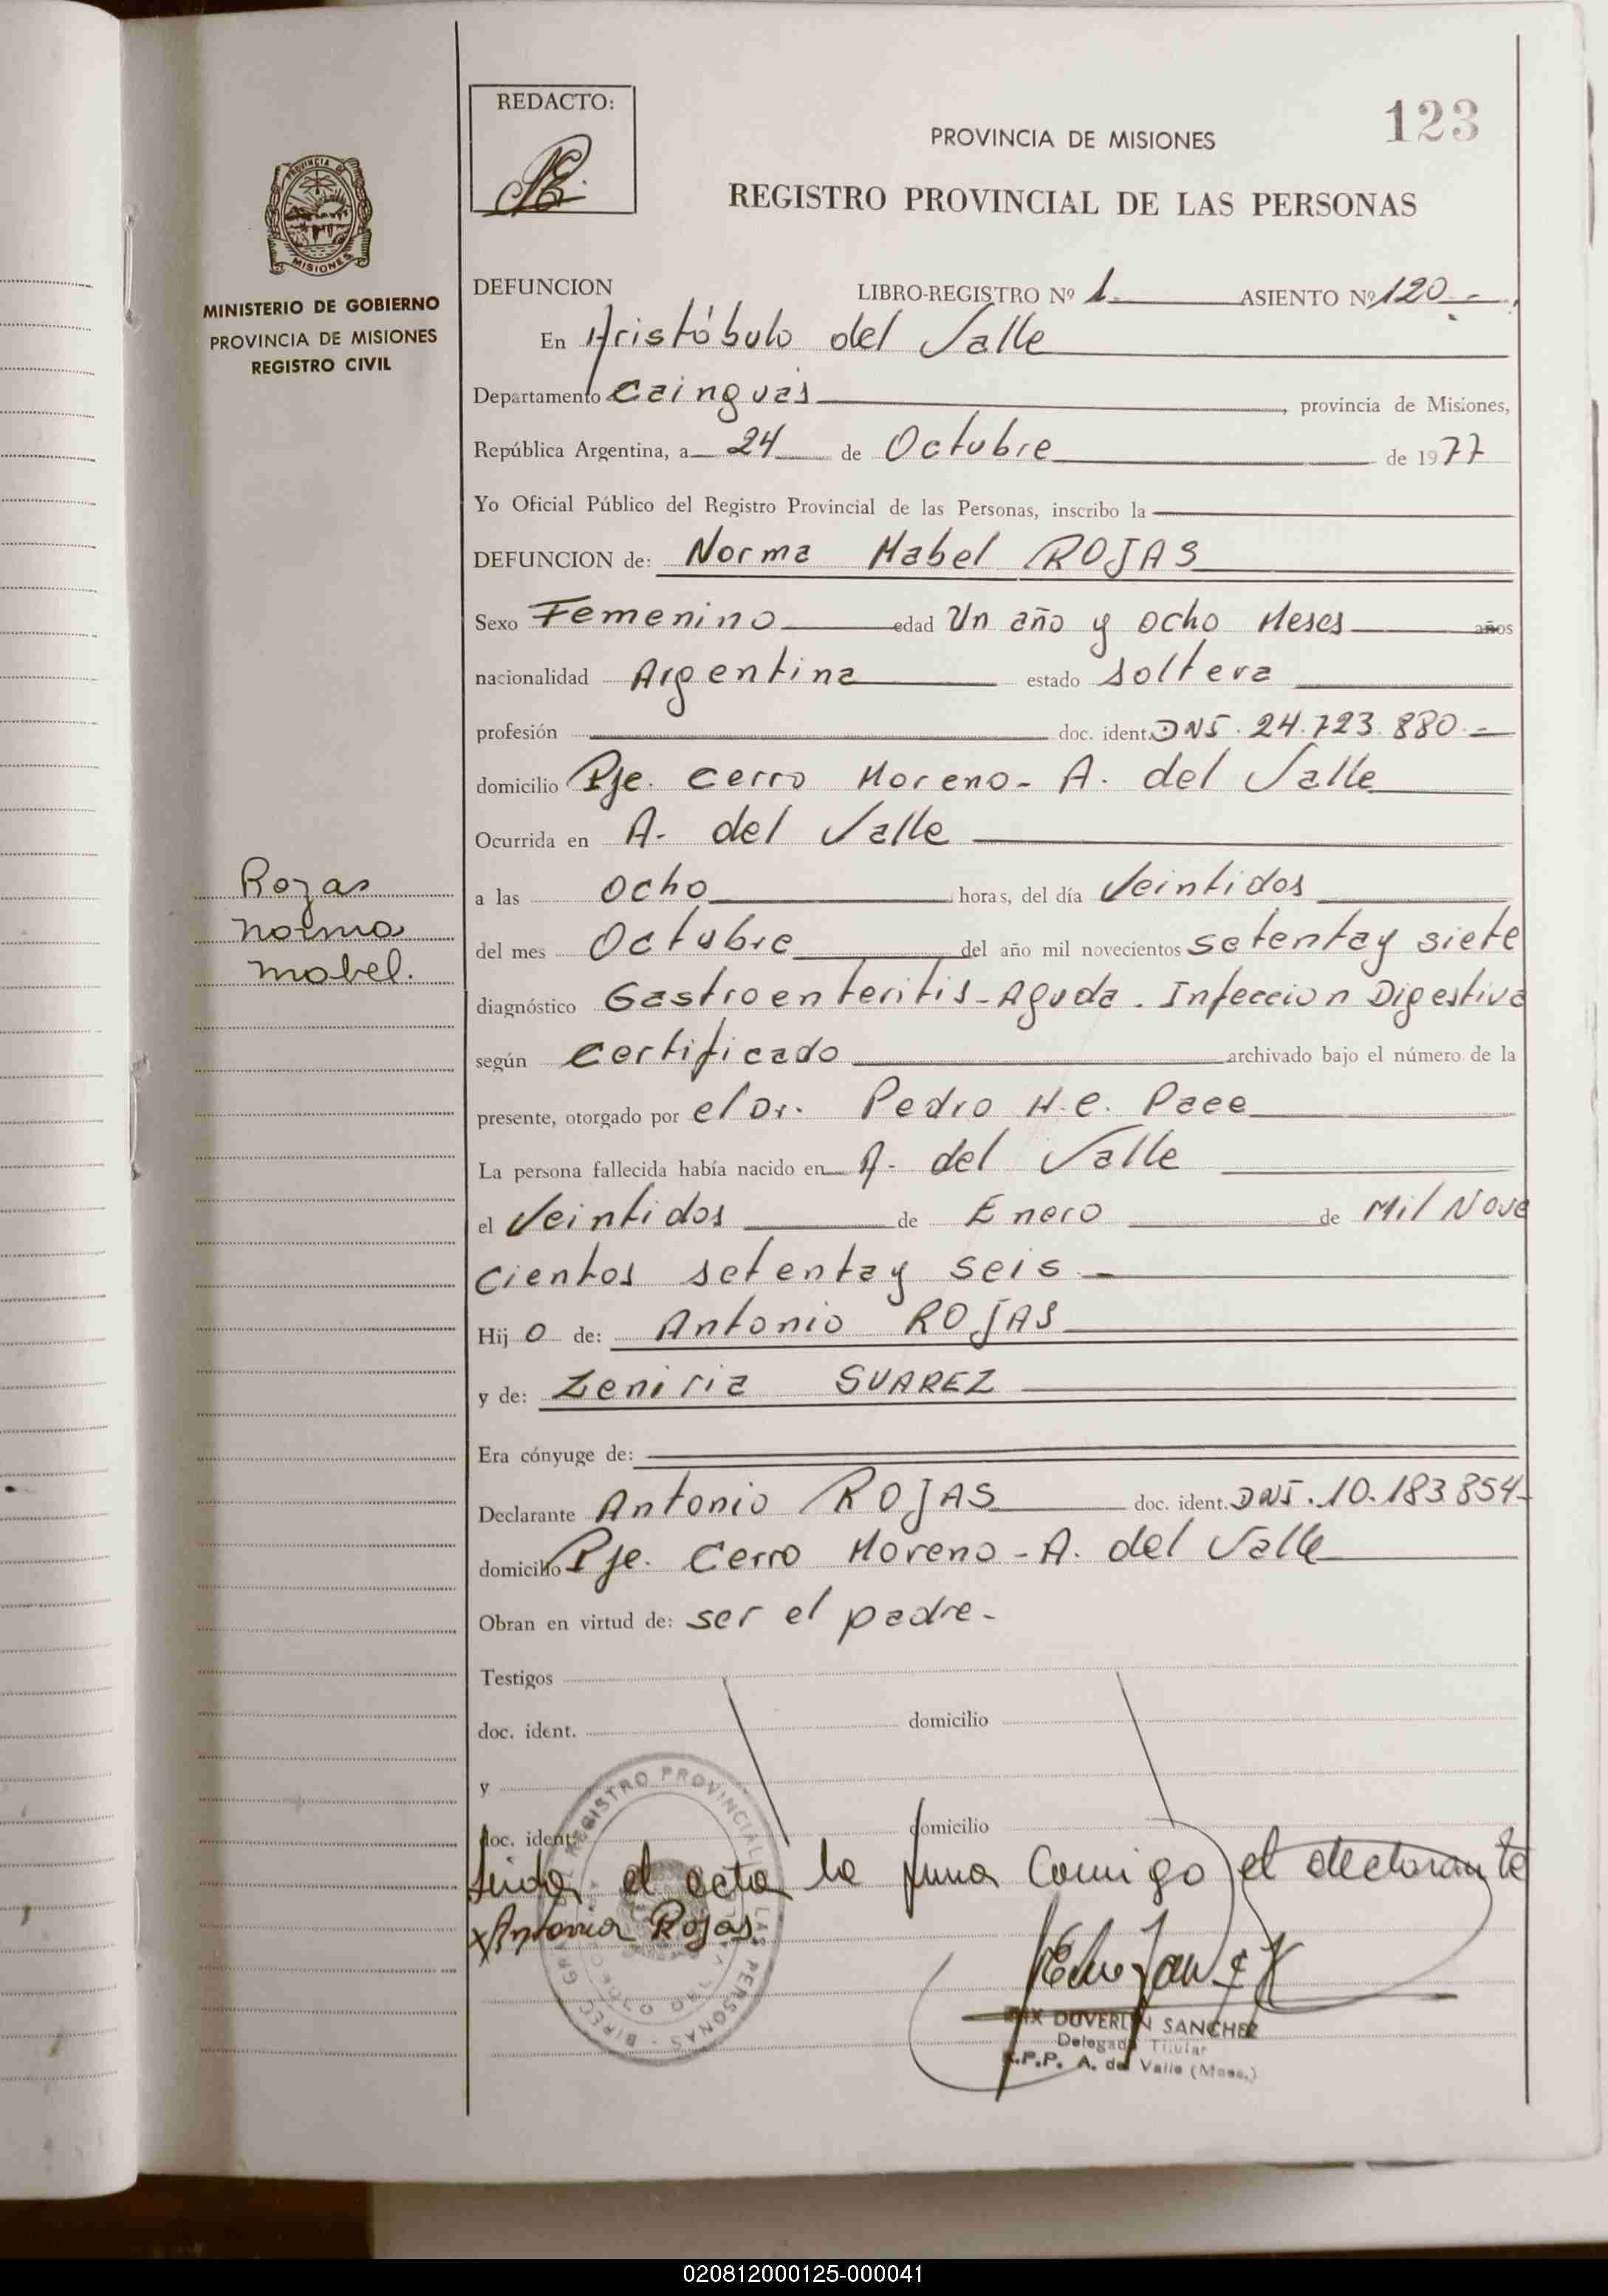 REDACTO:
123
PROVINCIA DE MISIONES
REGISTRO PROVINCIAL DE LAS PERSONAS
PROVINCIA DE
MISIONES
MINISTERIO DE GOBIERNO
PROVINCIA DE MISIONES
REGISTRO CIVIL
DEFUNCION LIBRO-REGISTRO Nº 1 ASIENTO Nº 120.-
En Aristóbulo del Valle
Departamento Cainguás, provincia de Misiones,
República Argentina, a 24 de Octubre de 1977
Yo Oficial Público del Registro Provincial de las Personas, inscribo la
DEFUNCION de: Norma Mabel ROJAS
Sexo Femenino edad Un año y ocho Meses años
nacionalidad Argentina estado soltera
profesión doc. ident. DNI. 24.723.880.-
domicilio Pje. Cerro Moreno - A. del Valle
Ocurrida en A. del Valle
Rojas
Norma
Mabel.
a las ocho horas, del día Veintidos
del mes Octubre del año mil novecientos setentay siete
diagnóstico Gastroenteritis-Aguda. Infeccion Digestiva
según certificado archivado bajo el número de la
presente, otorgado por el Dr. Pedro H.C. Pace
La persona fallecida había nacido en A. del Valle
el Veintidos de Enero de Mil Nove
cientos setentay seis -
Hij o de: Antonio ROJAS
y de: Zeniria SUAREZ
Era cónyuge de:
Declarante Antonio ROJAS doc. ident. DNI. 10.183.854-
domicilio Pje. Cerro Moreno - A. del Valle
Obran en virtud de: ser el padre -
Testigos
doc. ident. domicilio
y
doc. ident. domicilio
Leida el acta la firma Comigo el declarante
x Antonio Rojas.
REGISTRO PROVINCIAL LAS PERSONAS
DUVERLIN SANCHEZ
Delegado Titular
R.P.P. A. del Valle (Mnes.)
020812000125-000041